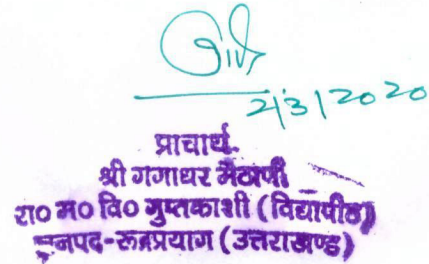 2/3/2020
प्राचार्य
श्री गंगाधर मैठाणी
रा० म० वि० गुप्तकाशी (विद्यापीठ)
जनपद-रूद्रप्रयाग (उत्तराखण्ड)